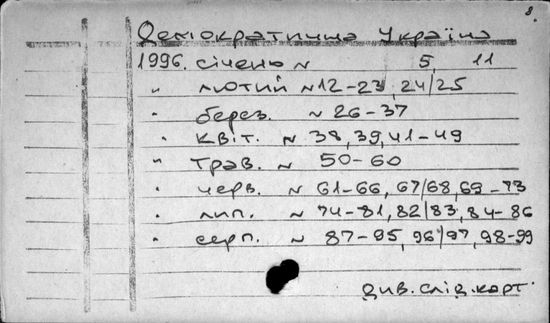 8.
Демократична Україна
1996. січень № 5 11
" лютий № 12-23 24/25
" берез. № 26-37
" квіт. № 38, 39, 41-49
" трав. № 50-60
" черв. № 61-66, 67/68, 69-73
" лип. № 74-81, 82/83, 84-86
" серп. № 87-95, 96/97, 98-99
див. слід. карт.